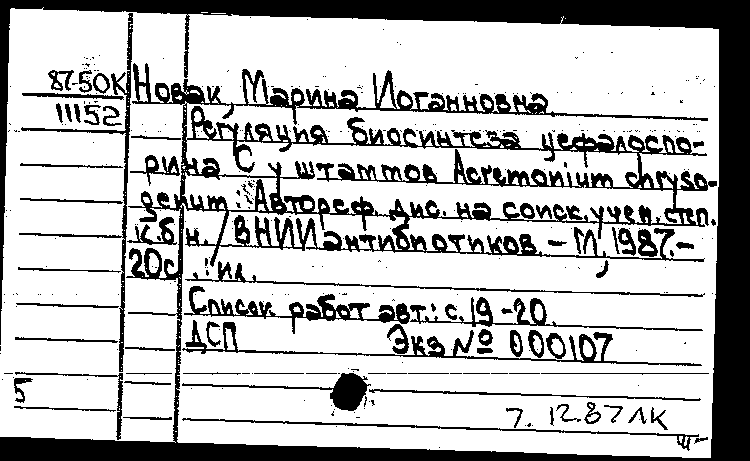 87-50К Новак, Марина Иоганновна
11152 Регуляция биосинтеза цефалоспо-
рина С у штаммов Acremonium chryso-
genum : Автореф. дис. на соиск. учен. степ.
к.б.н. / ВНИИ антибиотиков. - М., 1987. -
20с. : ил.
Список работ авт.: с. 19-20.
ДСП Экз № 000107
5
7. 12.87 ЛК